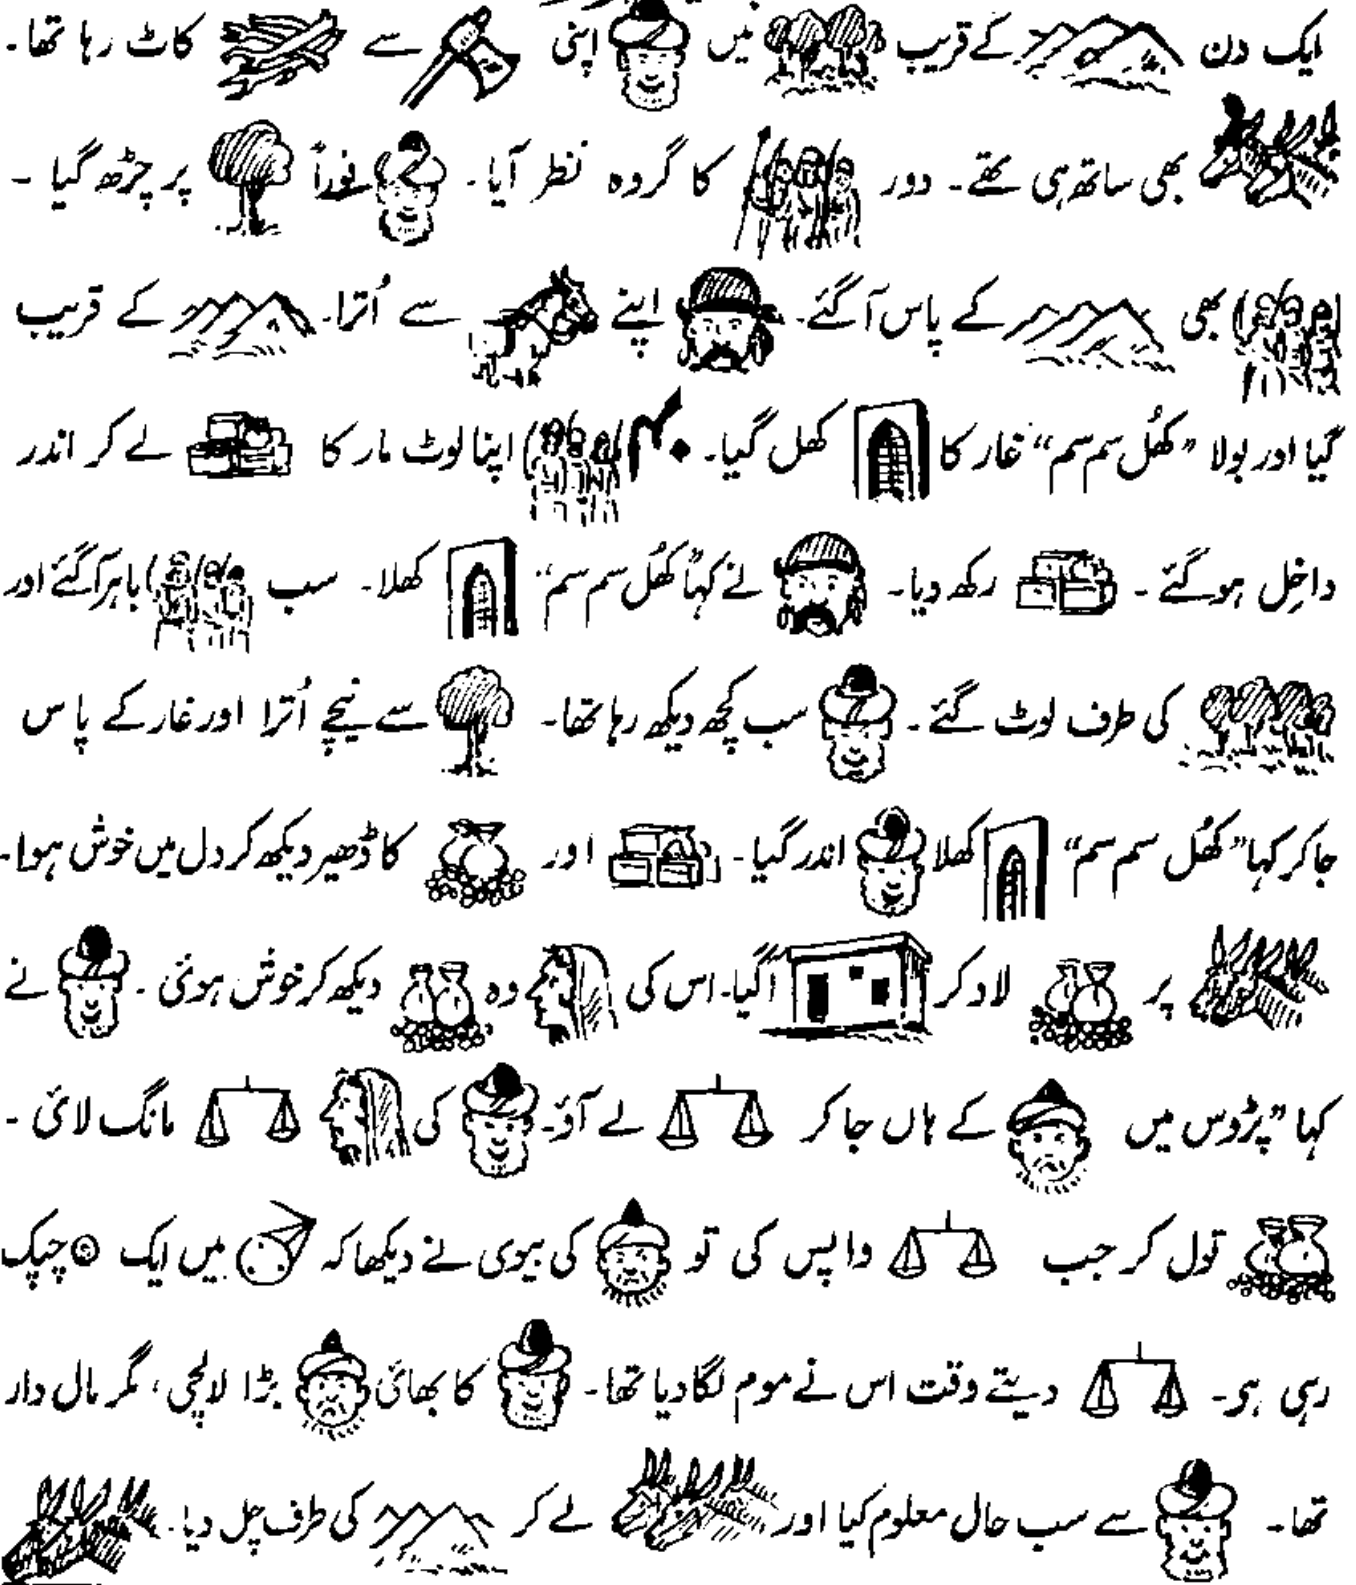 ایک دن کے قریب میں اپنی سے کاٹ رہا تھا۔
بھی ساتھ ہی تھے۔ دور کا گروہ نظر آیا۔ فوراً پر چڑھ گیا ۔
بھی کے پاس آگئے۔ اپنے سے اُترا۔ کے قریب
گیا اور بولا ”کھُل سم سم“ غار کا کھل گیا۔ ۴۰ اپنا لوٹ مار کا لے کر اندر
داخِل ہوگئے ۔ رکھ دیا۔ نے کہا ”کھُل سم سم“ کھلا۔ سب باہر آگئے اور
کی طرف لوٹ گئے ۔ سب کچھ دیکھ رہا تھا۔ سے نیچے اُترا اور غار کے پاس
جاکر کہا ”کھُل سم سم“ کھلا اندر گیا۔ اور کا ڈھیر دیکھ کر دل میں خوش ہوا۔
پر لاد کر آگیا۔ اس کی وہ دیکھ کر خوش ہوئی ۔ نے
کہا ”پڑوس میں کے ہاں جاکر لے آؤ۔ کی مانگ لائی ۔
تول کر جب واپس کی تو کی بیوی نے دیکھا کہ میں ایک چپک
رہی ہو۔ دیتے وقت اس نے موم لگا دیا تھا۔ کا بھائی بڑا لالچی، مگر مال دار
تھا۔ سے سب حال معلوم کیا اور لے کر کی طرف چل دیا۔